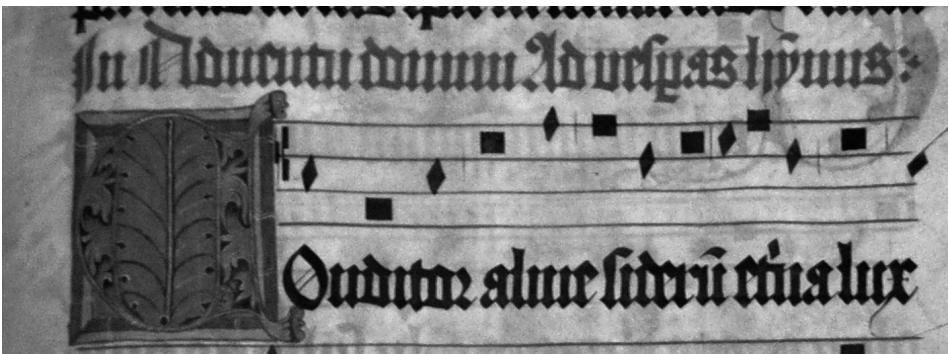 In Adventu domini Ad vesperas hymnus:
Conditor alme siderū etn̄a lux